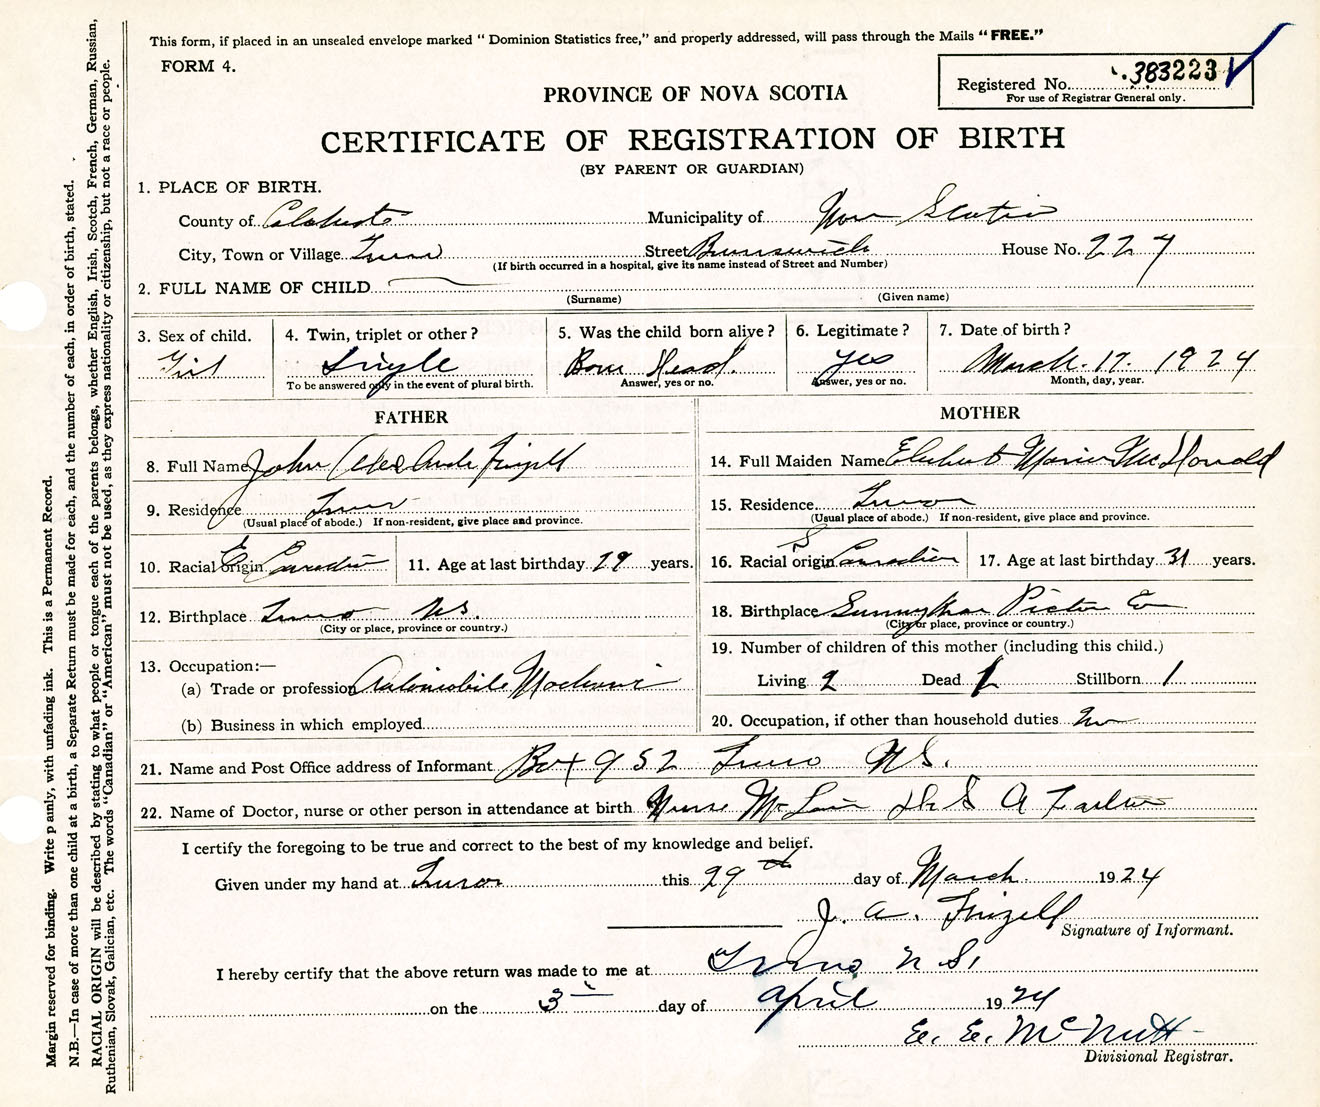 This form, if placed in an unsealed envelope marked " Dominion Statistics free," and properly addressed, will pass through the Mails "FREE."
FORM 4.
Registered No. 383223
For use of Registrar General only.
PROVINCE OF NOVA SCOTIA
CERTIFICATE OF REGISTRATION OF BIRTH
(BY PARENT OR GUARDIAN)
1. PLACE OF BIRTH.
County of Municipality of Nova Scotia
City, Town or Village Truro Street Brunswick House No. 227
(If birth occurred in a hospital, give its name instead of Street and Number)
2. FULL NAME OF CHILD
(Surname) (Given name)
3. Sex of child. 4. Twin, triplet or other? 5. Was the child born alive? 6. Legitimate? 7. Date of birth?
Girl Single Born Dead. yes March. 17. 1924
To be answered only in the event of plural birth. Answer, yes or no. Answer, yes or no. Month, day, year.
FATHER MOTHER
8. Full Name John Frizell 14. Full Maiden Name McDonald
9. Residence Truro 15. Residence. Truro
(Usual place of abode.) If non-resident, give place and province. (Usual place of abode.) If non-resident, give place and province.
10. Racial origin E Canadian 11. Age at last birthday 29 years. 16. Racial origin S Canadian 17. Age at last birthday 31 years.
12. Birthplace Truro NS. 18. Birthplace Sunnybrae Pictou Co
(City or place, province or country.) (City or place, province or country.)
13. Occupation:— 19. Number of children of this mother (including this child.)
(a) Trade or profession Automobile Living 2 Dead 1 Stillborn 1
(b) Business in which employed 20. Occupation, if other than household duties
21. Name and Post Office address of Informant Box 952 Truro NS.
22. Name of Doctor, nurse or other person in attendance at birth Nurse
I certify the foregoing to be true and correct to the best of my knowledge and belief.
Given under my hand at Truro this 29th day of March 1924
J. A. Frizell
Signature of Informant.
I hereby certify that the above return was made to me at Truro N.S.
on the 3 day of April 1924
E. E. McNutt
Divisional Registrar.
Margin reserved for binding. Write p anly, with unfading ink. This is a Permanent Record.
N.B.—In case of more than one child at a birth, a Separate Return must be made for each, and the number of each, in order of birth, stated.
RACIAL ORIGIN will be described by stating to what people or tongue each of the parents belongs, whether English, Irish, Scotch, French, German, Russian,
Ruthenian, Slovak, Galician, etc. The words "Canadian" or "American" must not be used, as they express nationality or citizenship, but not a race or people.